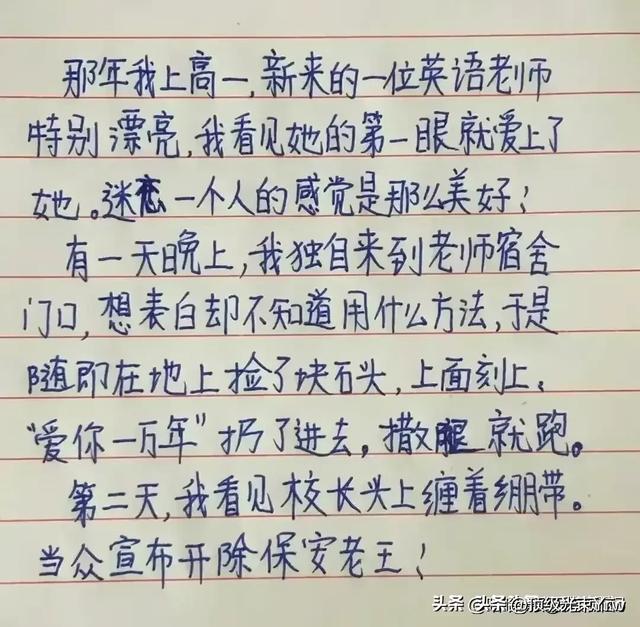 那年我上高一,新来的一位英语老师
特别漂亮,我看见她的第一眼就爱上了
她。迷恋一个人的感觉是那么美好!
有一天晚上,我独自来到老师宿舍
门口,想表白却不知道用什么方法,于是
随即在地上捡了块石头,上面刻上:
"爱你一万年"扔了进去,撒腿就跑。
第二天,我看见校长头上缠着绷带。
当众宣布开除保安老王!
头条